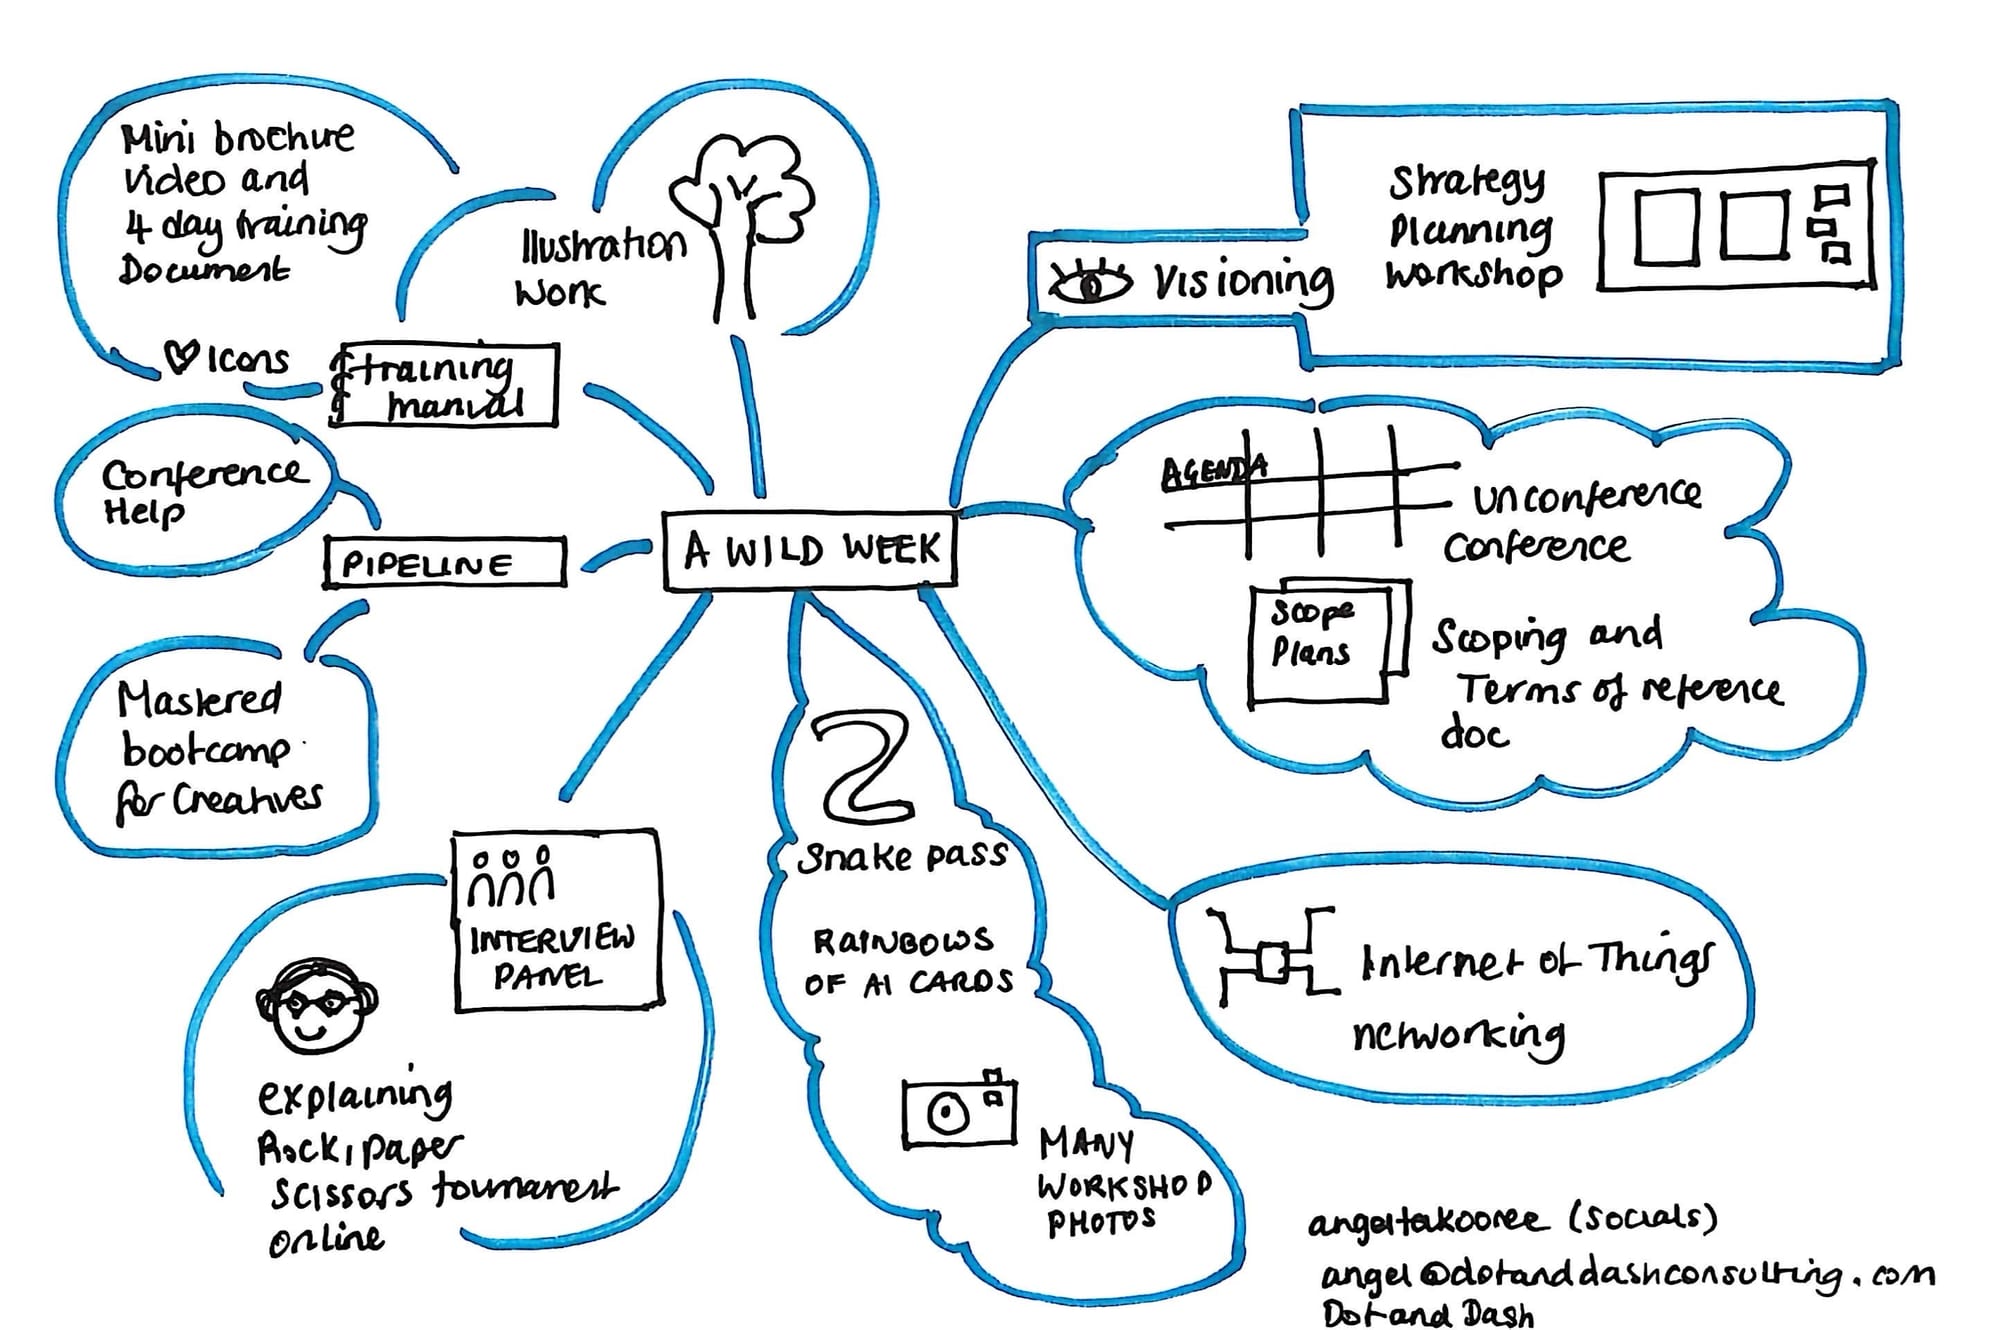 Mini brochure
Video and
4 day training
Document
♡ Icons
training
manual
Illustration
Work
Visioning
Strategy
Planning
Workshop
Conference
Help
PIPELINE
A WILD WEEK
AGENDA
Unconference
Conference
Scope
Plans
Scoping and
Terms of reference
doc
Mastered
bootcamp
for Creatives
INTERVIEW
PANEL
explaining
Rock, paper
scissors tournament
online
Snake pass
RAINBOWS
OF AI CARDS
MANY
WORKSHOP
PHOTOS
Internet of Things
networking
(socials)
angel@dotanddashconsulting.com
Dot and Dash